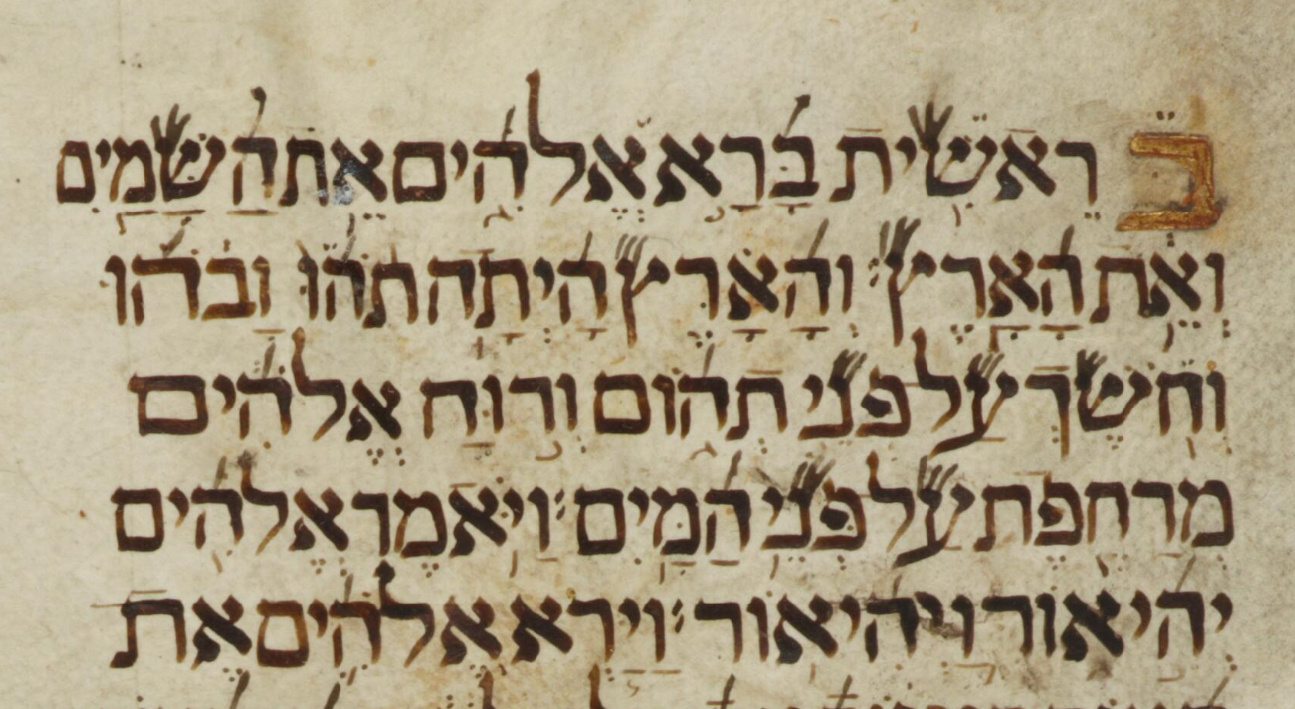 בראשית ברא אלהים את השמים
ואת הארץ׃ והארץ היתה תהו ובהו
וחשך על פני תהום ורוח אלהים
מרחפת על פני המים׃ ויאמר אלהים
יהי אור ויהי אור׃ וירא אלהים את